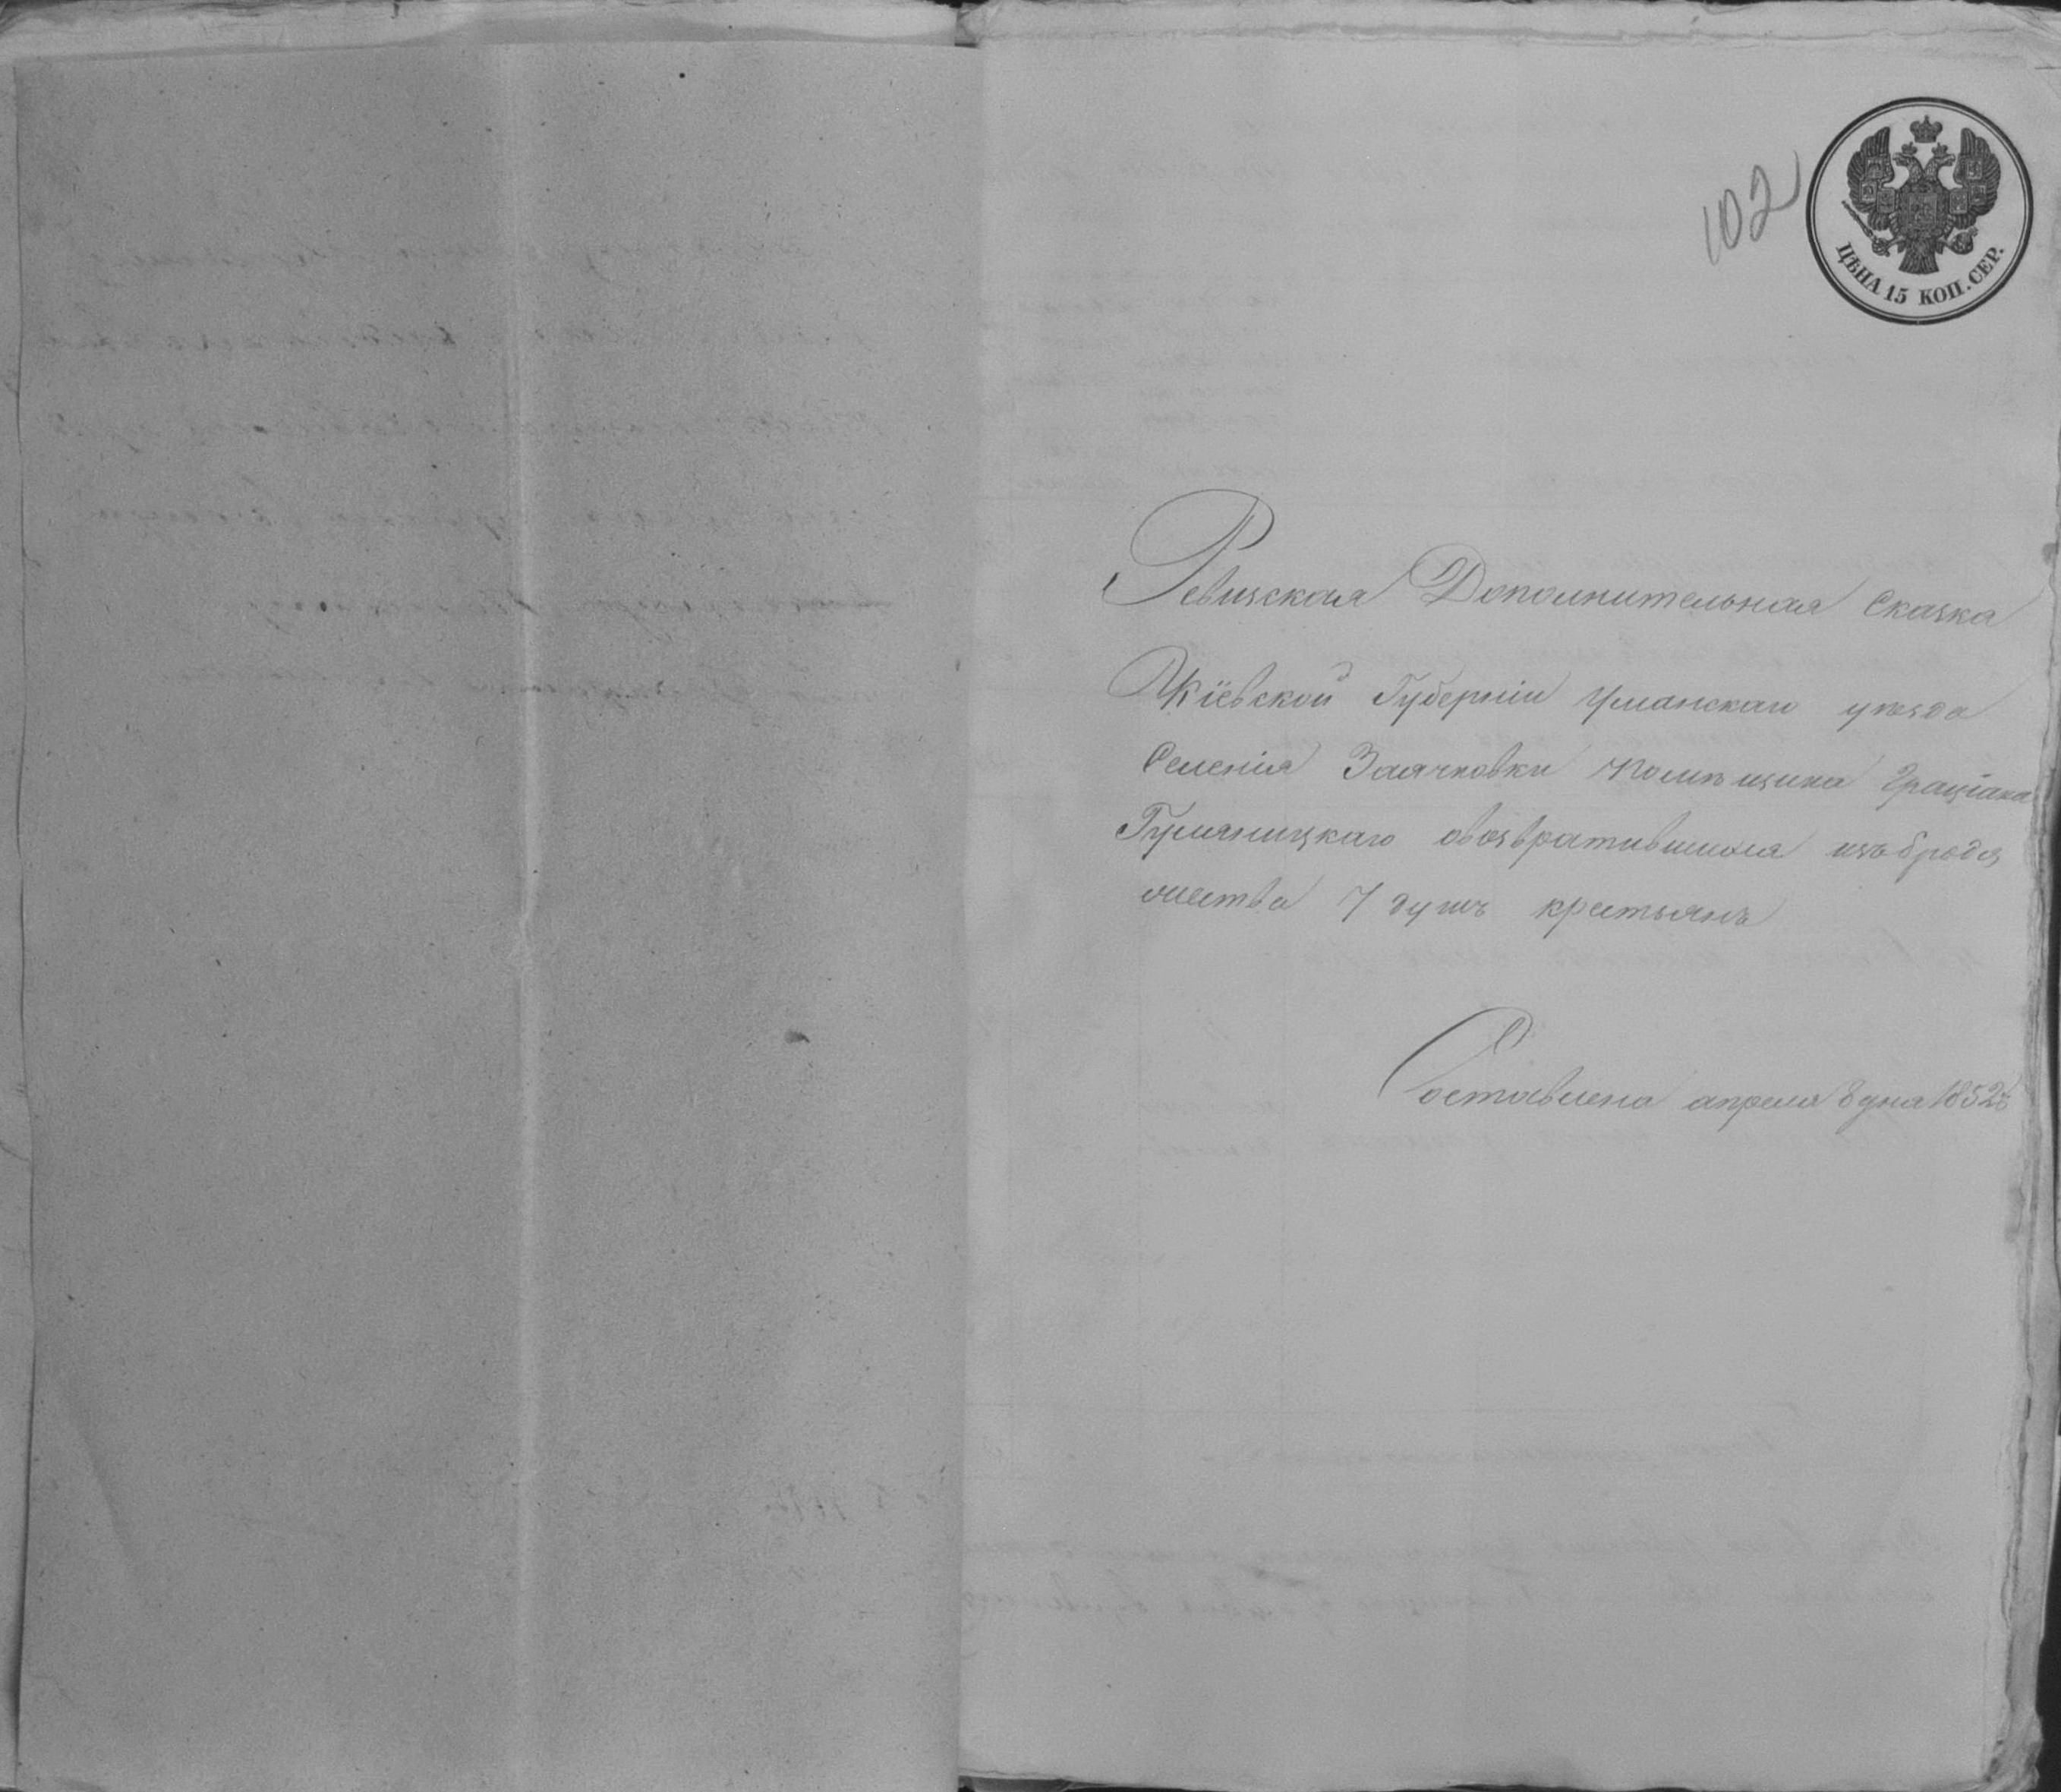 102
ЦѢНА 15 КОП. СЕР.
Ревизская Дополнительная Сказка
Кіевской Губерніи Уманскаго уѣзда
Селенія Заячковки Помѣщика Граціана
обозвратившихся изъ бродя
жества 7 душъ крестьянъ
Составлена апреля 8 дня 1852 г